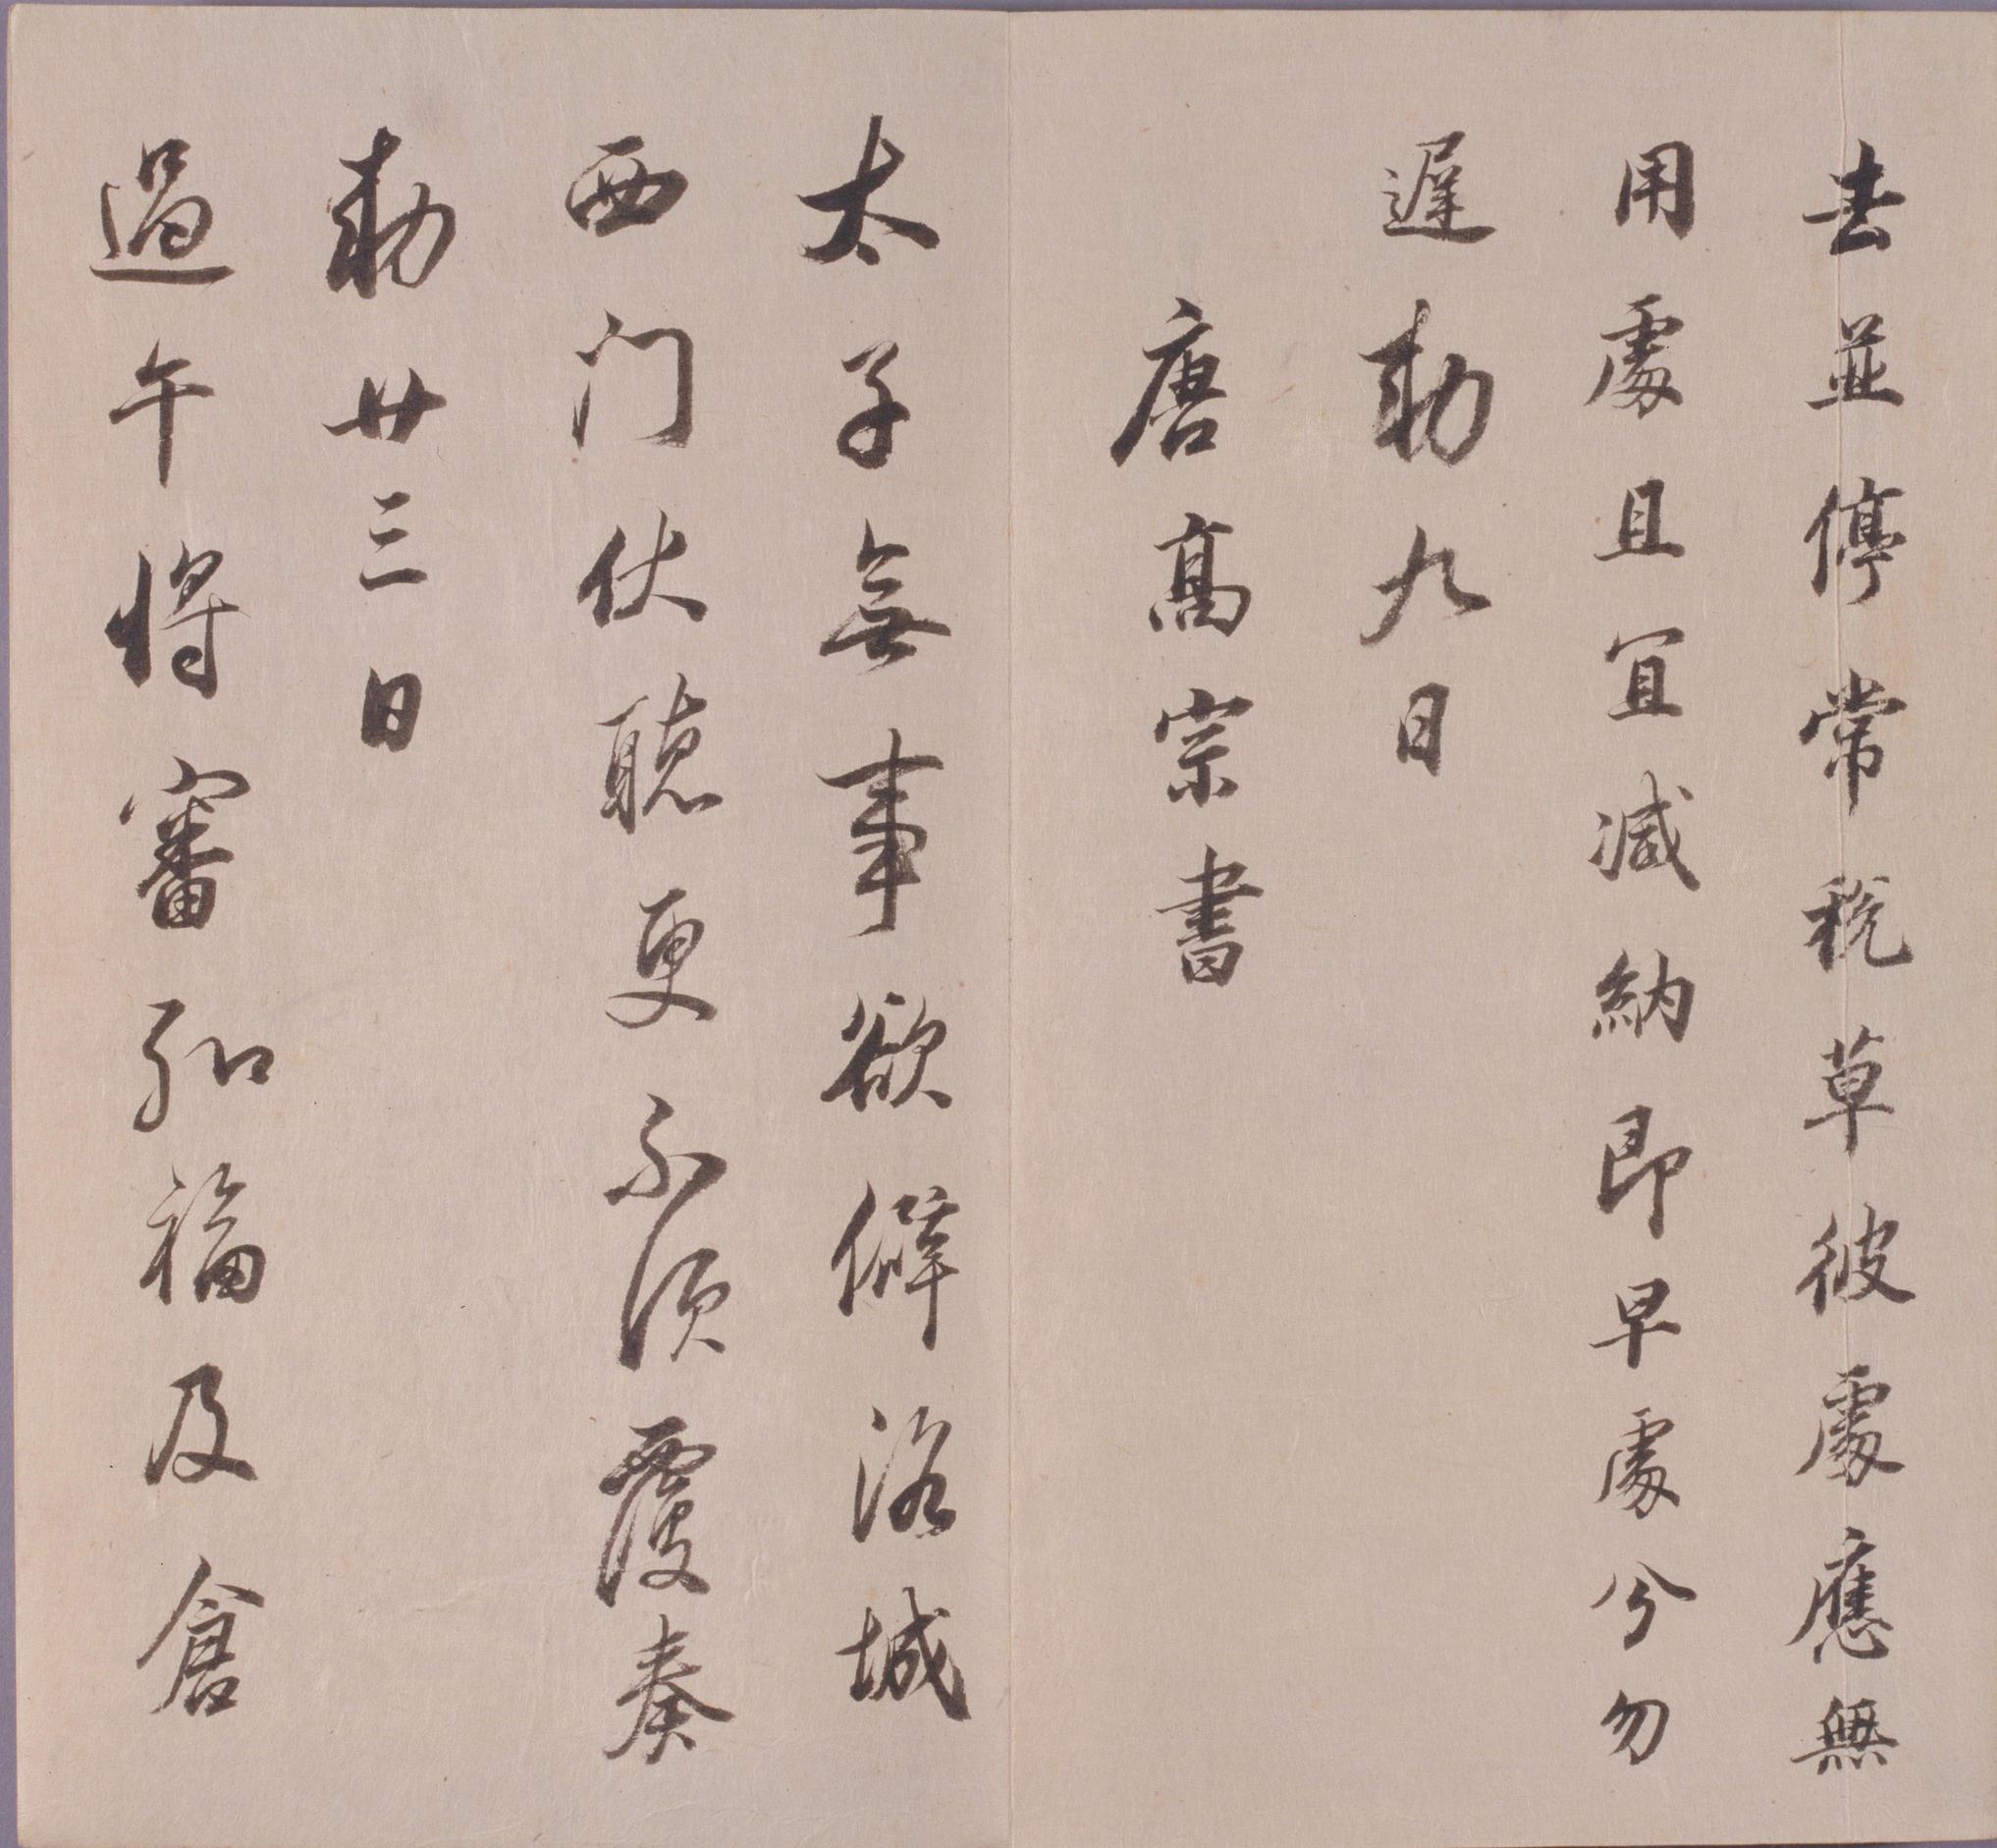 去並停常稅草彼處應無
用處且宜減納即早處分勿
遲敕九日
唐高宗書
太子無事欲僻洛城
西门仗聽更不須覆奏
敕廿三日
過午將審弘福及倉